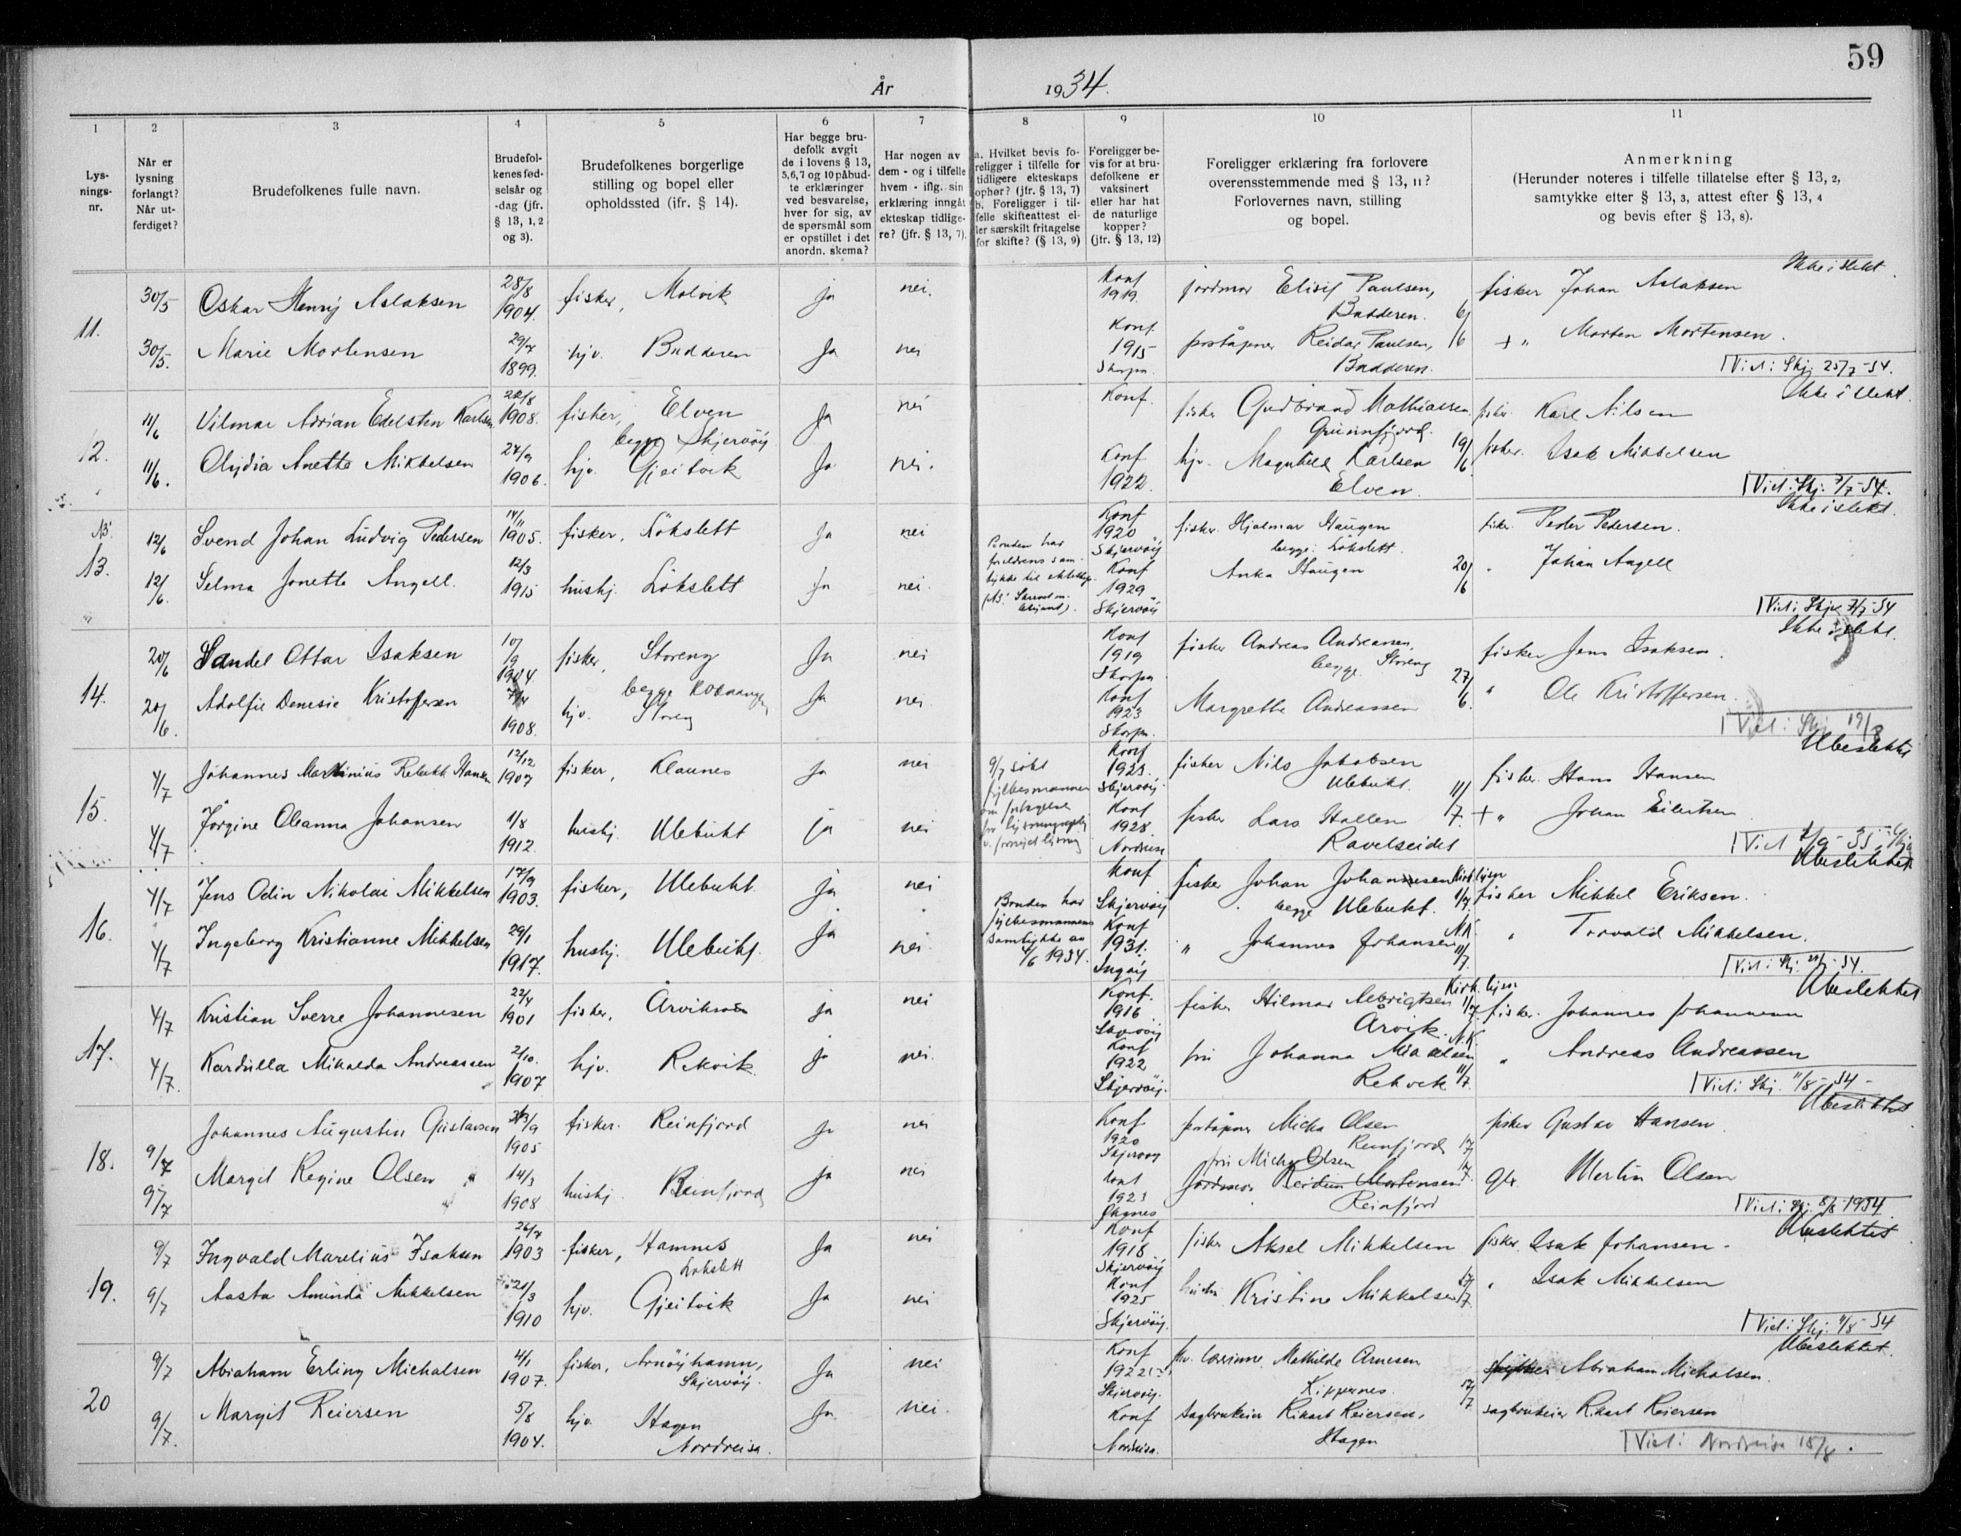 59
År 1934.
1 2 3 4 5 6 7 8 9 10 11
Lys-
nings-
nr.
Når er
lysning
forlangt?
Når ut-
ferdiget?
Brudefolkenes fulle navn.
Brudefol-
kenes fød-
selsår og
-dag (jfr.
§ 13, 1, 2
og 3).
Brudefolkenes borgerlige
stilling og bopel eller
opholdssted (ifr. § 14).
Har begge bru-
defolk avgit
de i lovens § 13,
5,6,7 og 10 påbud-
te erklæringer
ved besvarelse,
hver for sig, av
de spørsmål som
er opstillet i det
anordn. skema?
Har nogen av
dem - og i tilfelle
hvem - iflg. sin
erklæring inngåt
ekteskap tidlige-
re? (jfr. § 13, 7).
a. Hvilket bevis fo-
religger i tilfelle for
tidligere ekteskaps
ophør? (jfr. § 13, 7)
b. Foreligger i til-
felle skifteattest el-
ler særskilt fritagelse
for skifte? (§ 13, 9)
Foreligger be-
vis for at bru-
defolkene er
vaksinert
eller har hat
de naturlige
kopper?
(jfr. § 13, 12)
Foreligger erklæring fra forlovere
overensstemmende med § 13, 11?
Forlovernes navn, stilling
og bopel.
Anmerkning
(Herunder noteres i tilfelle tillatelse efter § 13, 2,
samtykke efter § 13, 3, attest efter § 13, 4
og bevis efter § 13, 8).
Ikke i slekt.
11.
30/5 Oskar Henry Aslaksen 28/8 1904. fisker, Molvik ja nei. Konf 1919. jordmor Elisif Paulsen, Badderen. fisker Johan Aslaksen
30/5. Marie Mortensen 1899. hjv. Badderen Ja nei Konf. 1915 Skorpa poståpner Reidar Paulsen, Badderen. 6/6 + " Morten Mortensen.
Viet i Skj. 25/7-34.
Ikke i slekt.
12.
11/6 Vilmar Adrian Edelsten Karlsen 1908. fisker, Elven begge Skjervøy Ja nei Konf. fisker Gudbrand Mathiassen Grunnfjord. fisker Karl Nilsen
11/6. Olydia Anette Mikkelsen 1906. hjv. Gjeitvik Ja nei. Konf 1922. hjv. Magnhild Karlsen Elven. 19/6 fisker. Isak Mikkelsen
Viet i Skj. 7/7-34.
Ikke i slekt.
13.
12/6 Svend Johan Ludvig Pedersen 14/11 1905. fisker, Lökslett Ja nei Konf 1920 Skjervöy fisker Hjalmar Haugen begge: Lökslett. fisker Peder Pedersen.
12/6. Selma Jonette Angell. 12/3 1915 hushj. Lökslett Ja nei. Konf 1929 Skjervöy Anka Haugen 20/6 " Johan Angell
Viet i Skjv. 7/7-34
Ikke i slekt.
14.
20/6 Sandel Ottar Isaksen 10/9 1904. fisker, Storeng begge Kvænangen Ja nei Konf 1919 Skorpa fisker Andreas Andreassen, begge Storeng fisker Jens Isaksen.
20/6. Adolfie Denisie Kristoffersen 1908. hjv. Storeng Ja nei. Konf 1923 Skorpa. Margrethe Andreassen 27/6. " Ole Kristoffersen.
Viet i Skj. 19/8
Ubeslektet
15.
4/7 Johannes Martinius Rebekk Hansen 12/12 1907 fisker, Klaunes Ja nei 9/7 søkt fylkesmannen Konf 1923. Skjervöy. fisker Nils Jakobsen Ulebukt. fisker. Hans Hansen
4/7 Jörgine Oleanna Johansen 1/8 1912. hushj. Ulebukt ja nei Konf 1928. Nordreisa fisker Lars Hallen Ravelseidet 11/7. + " Johan Eilertsen
Ubeslektet
16.
4/7 Jens Odin Nikolai Mikkelsen 17/9 1903. fisker, Ulebukt. ja nei Bruden har fylkesmannens samtykke av 4/6 1934. Konf Skjervöy fisker Johan Johannesen begge Ulebukt. fisker Mikkel Eriksen.
4/7 Ingeborg Kristianne Mikkelsen 29/1 1917. hushj. Ulebukt. ja nei. Konf 1931. Ingöy " Johannes Johansen 11/7. " Torvald Mikkelsen.
Ubeslektet
17.
4/7 Kristian Sverre Johannesen 22/4 1901 fisker, Årviksand ja nei Konf. 1916 Skjervöy fisker Hilmar Albrigtsen Årvik. fisker. Johannes Johannesen
4/7. Kardulla Mikalda Andreassen 2/10. 1907 hjv. Rekvik. ja nei. Konf 1922 Skjervöy. fru Johanna Mikkelsen Rekvik 11/7. " Andreas Andreassen
Viet i Skj. 11/8-34-
Ubeslektet
18.
9/7 Johannes Augustin Gustavsen 1905 fisker. Reinfjord ja nei Konf 1920 Skjervöy poståpner Micha Olsen Reinfjord fisker Gustav Hansen.
9/7 Margit Regine Olsen 14/3 1908 hushj. Reinfjord ja nei Konf 1923 Öksnes fru Micha Olsen Jordmor Reidun Mortensen Reinfjord gbr. Merlin Olsen
Viet i Skj. 5/8 1934.
Ubeslektet
19.
9/7 Ingvald Marelius Isaksen 26/7 1903 fisker, Hamnes Lökslett Ja nei Konf 1918 Skjervöy fisker Aksel Mikkelsen fisker Isak Johansen.
9/7 Aasta Amunda Mikkelsen 21/3 1910 hjv. Gjeitvik Ja nei Konf 1925 Skjervöy. Kristine Mikkelsen 17/7 " Isak Mikkelsen
Viet i Skj. 4/8-34
Ubeslektet.
20
9/7 Abraham Erling Michalsen 4/1 1907. fisker, Arnöyhamn, Skjervöy. Ja nei Konf 1922 Skjervöy. Mathilde Arnesen Kippernes. fisker Abraham Michalsen.
9/7. Margit Reiersen 5/8 1904. hjv. Hagen Nordreisa. Ja nei. Konf Nordreisa. sagbrukeier Rikart Reiersen, Hagen 17/7 sagbrukeier Rikart Reiersen
Viet i Nordreisa 15/8.